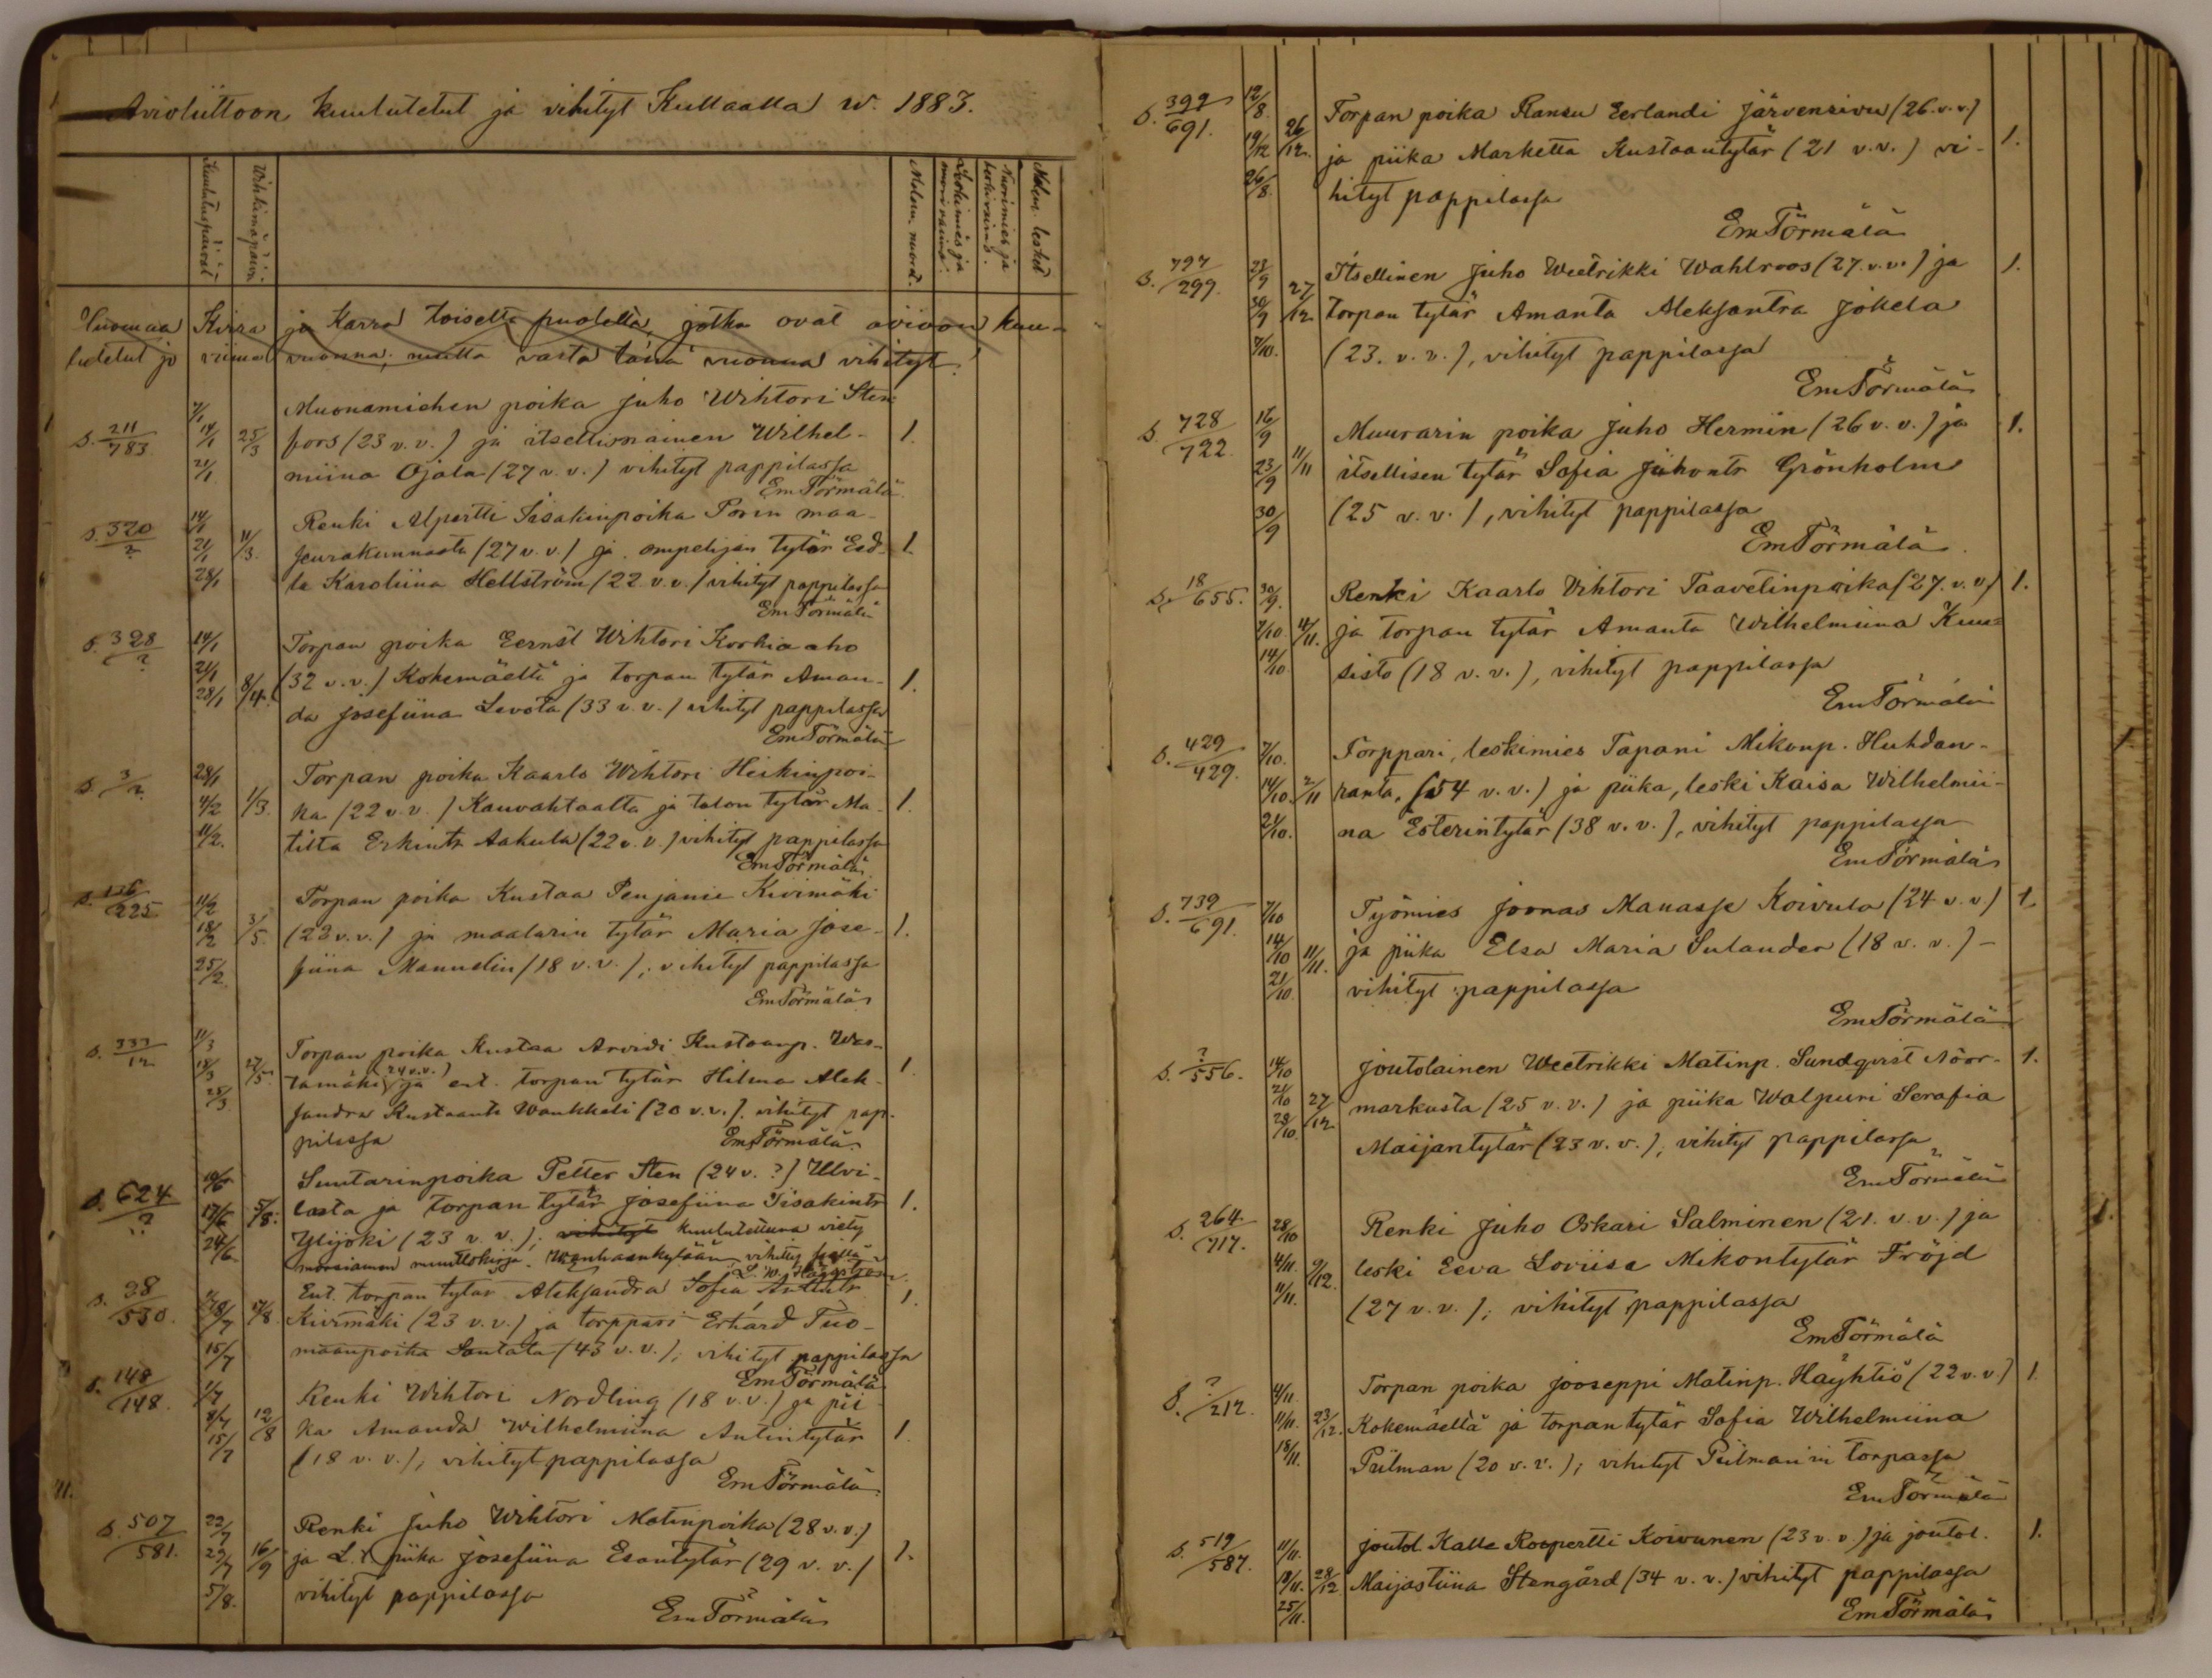 Avioliittoon kuulutetut ja vihityt Kullaalla w. 1883.
Kuulutuspäivät.
Vihkimäpäivä.
Molem. nuoret.
Leskimies ja nuori vaimo.
Nuorimies ja leskivaimo.
Molem. lesket
Huomaa Kirra ja Karra toisella puolella, jotka ovat avioon kuu-
lutetut jo viime vuonna, mutta vasta tänä vuonna vihityt.
7/1 Muonamiehen poika Juho Wihtori Sten
S. 211/783 14/1 25/3 fors (23 v.v.) ja itsellisnainen Wilhel- 1.
21/1 miina Ojala (27 v.v.) vihityt pappilassa
Em Törmälä
14/1 Renki Alpertti Iisakinpoika Porin maa-
S. 520/? 21/1 11/3. seurakunnasta (27 v.v.) ja ompelijan tytär Eed- 1.
28/1 la Karoliina Hellström (22 v.v.) vihityt pappilassa
Em Törmälä
S. 328/? 14/1 Torpan poika Eernst Wihtori Korkia aho
21/1 8/4. (32 v.v.) Kokemäeltä ja torpan tytär Aman- 1.
28/1 da Josefiina Levota (33 v.v.) vihityt pappilassa
Em Törmälä
S. 3/? 28/1 Torpan poika Kaarlo Wihtori Heikinpoi-
4/2 1/3. ka (22 v.v.) Kauvahtaalta ja talon tytär Ma- 1.
11/2. tilta Erkintr Aakula (22 v.v.) vihityt pappilassa
Em Törmälä
S. /225 11/2 Torpan poika Kustaa Penjami Kivimäki
18/2 3/5. (23 v.v.) ja maalarin tytär Maria Jose- 1.
25/2 fiina Mannelin (18 v.v.); vihityt pappilassa
Em Törmälä
S. 333/12 11/3 Torpan poika Kustaa Arvidi Kustaanp. Was-
18/3 27/5. tamäki (24 v.v.) ja ent. torpan tytär Hilma Alek- 1.
25/3 sandra Kustaantr Waukkeli (20 v.v.). vihityt pap-
pilassa Em Törmälä
10/6 Suutarinpoika Petter Sten (24 v. ?) Ulvi-
S. 624/? 17/6 5/8. lasta ja torpan tytär Josefiina Iisakintr 1.
24/6 Ylijoki (23 v.v.); vihityt kuulutettuna viety
morsiamen muuttokirja. Wanhaankylään, vihitty siellä
L. W. Häggström
S. 38/530. 1/7 Ent. torpan tytär Aleksandra Sofia Antintr 1.
8/7 17/8. Kiirmäki (23 v.v.) ja torppari Erhard Tuo-
15/7 maanpoika Santala (43 v.v.); vihityt pappilassa
Em Törmälä
S. 148/148. 1/7 Renki Wihtori Nordling (18 v.v.) ja pii
8/7 12/8 ka Amanda Wilhelmiina Antintytär 1.
15/7 (18 v.v.); vihityt pappilassa
Em Törmälä
S. 507/581. 22/7 Renki Juho Wihtori Matinpoika (28 v.v.)
29/7 16/9 ja L. t piika Josefiina Esantytär (29 v.v.) 1.
5/8. vihityt pappilassa
Em Törmälä
S. 392/691. 12/8. Torpan poika Ransu Eerlandi Järvensivu (26.v.v)
19/12 26/12. ja piika Marketta Kustaantytär (21 v.v.) vi- 1.
26/8. hityt pappilassa
Em Törmälä
S. 797/299. 23/9 Itsellinen Juho Weetrikki Wahlroos (27.v.v.) ja 1.
30/9 27/12 torpan tytär Amanta Aleksantra Jokela
7/10. (23. v.v.), vihityt pappilassa
Em Törmälä
S. 728/722. 16/9 Muurarin poika Juho Hermin (26 v.v.) ja 1.
23/9 11/11 itsellisen tytär Sofia Juhontr Grönholm
30/9 (25 v.v.), vihityt pappilassa
Em Törmälä.
S. 18/655. 30/9. Renki Kaarlo Vihtori Taavetinpoika (27.v.v) 1.
7/10. 4/11. ja torpan tytär Amanta Wilhelmiina Kuu-
14/10 sisto (18 v.v.), vihityt pappilassa
Em Törmälä
S. 429/429. 7/10. Torppari, leskimies Tapani Mikonp. Huhdan-
14/10. 2/11 ranta, (54 v.v.) ja piika, leski Kaisa Wilhelmii-
21/10. na Esterintytär (38 v.v.), vihityt pappilassa
Em Törmälä
S. 739/691. 7/10 Työmies Joonas Manasse Koivula (24 v.v) 1.
14/10 11/11. ja piika Elsa Maria Sulander (18 v.v.) -
21/10. vihityt pappilassa
Em Törmälä
S. ?/556. 14/10 Joutolainen Weetrikki Matinp. Sundqvist Noor- 1.
21/10 27/12 markusta (25 v.v.) ja piika Walpuri Serafia
28/10. Maijantytär (23 v.v.); vihityt pappilassa
Em Törmälä
S. 264/717. 28/10 Renki Juho Oskari Salminen (21. v.v.) ja
4/11. 9/12. leski Eeva Loviisa Mikontytär Fröjd
11/11. (27 v.v.); vihityt pappilassa
Em Törmälä
S. ?/212. 4/11. Torpan poika Jooseppi Matinp. Häyhtiö (22 v.v) 1
11/11. 23/12. Kokemäeltä ja torpan tytär Sofia Wilhelmiina
18/11. Piilman (20 v.v.); vihityt Piilman'in torpassa
Em Törmälä
S. 519/587. 11/11. joutol. Kalle Roopertti Koivunen (23 v.v.) ja joutol. 1.
18/11. 28/12 Maijastiina Stengård (34 v.v.) vihityt pappilassa
25/11. Em Törmälä